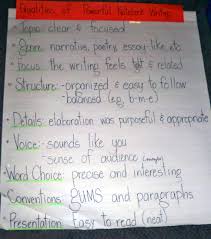 Qualities of Powerful Notebook Writing
• Topic: clear & focused
• Genre: narrative, poetry, essay-like, etc.
• Focus: the writing feels tight & related
• Structure: - organized & easy to follow
- balanced (e.g. b-m-e)
• Details: elaboration was purposeful & appropriate
• Voice: - sounds like you
- sense of audience
• Word Choice: precise and interesting
• Conventions: GUMS and paragraphs
• Presentation: Easy to read (neat)